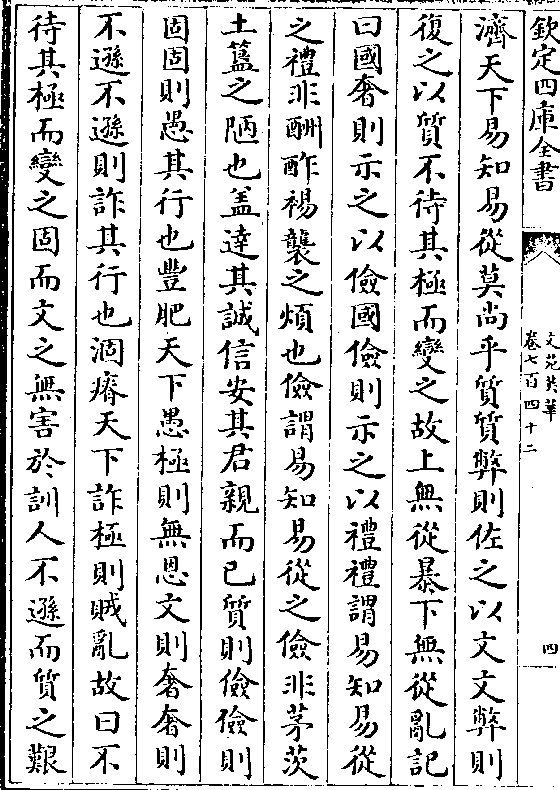 欽定四庫全書
文苑英華
卷七百四十二
四
濟天下易知易從莫尚乎質質弊則佐之以文文弊則
復之以質不待其極而變之故上無從暴下無從亂記
曰國奢則示之以儉國儉則示之以禮禮謂易知易從
之禮非酬酢裼襲之煩也儉謂易知易從之儉非茅茨
土簋之陋也盖達其誠信安其君親而已質則儉儉則
固固則愚其行也豐肥天下愚極則無恩文則奢奢則
不遜不遜則詐其行也涸瘠天下詐極則賊亂故曰不
待其極而變之固而文之無害於訓人不遜而質之艱